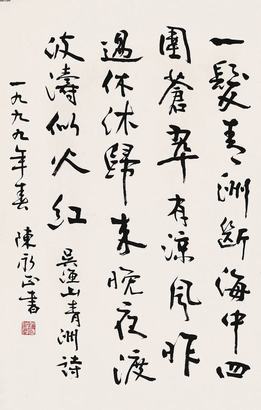 一髮青洲斷海中四
圍蒼翠有涼風昨
過休沐歸來晚夜渡
波濤似火紅 吳漁山青洲詩
一九九九年春 陳永正書